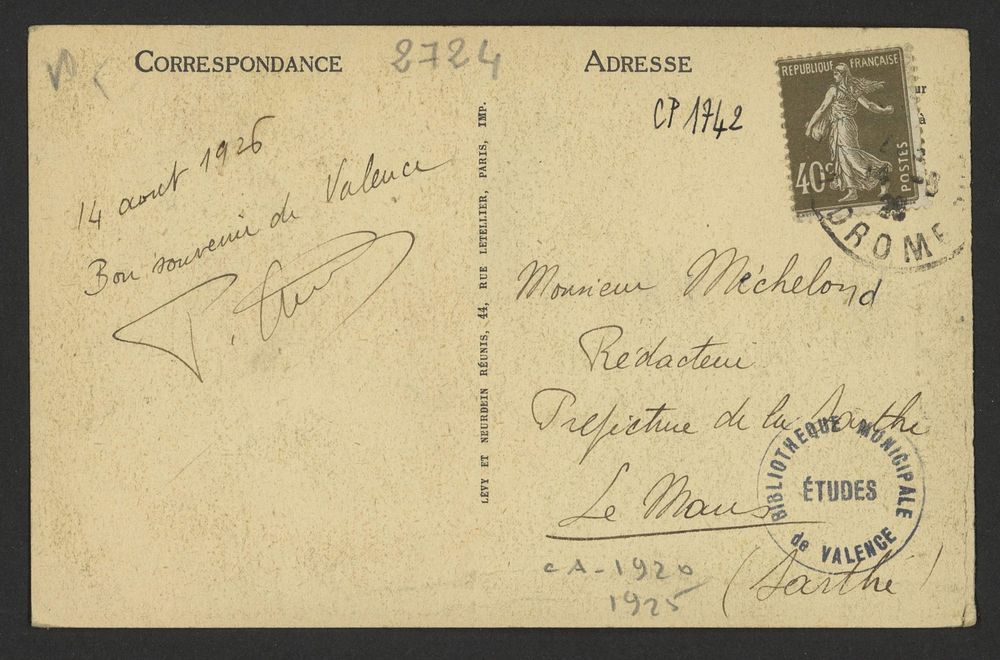 CORRESPONDANCE
2724
14 aout 1926
Bon souvenir de Valence
LÉVY ET NEURDEIN RÉUNIS, 44, RUE LETELLIER, PARIS, IMP.
ADRESSE
CP 1742
REPUBLIQUE FRANÇAISE
40c
POSTES
DROME
Monsieur Méchelond
Rédacteur
Préfecture de la Sarthe
Le Mans
(Sarthe)
BIBLIOTHEQUE MUNICIPALE
ÉTUDES
de VALENCE
CA - 1920
1925